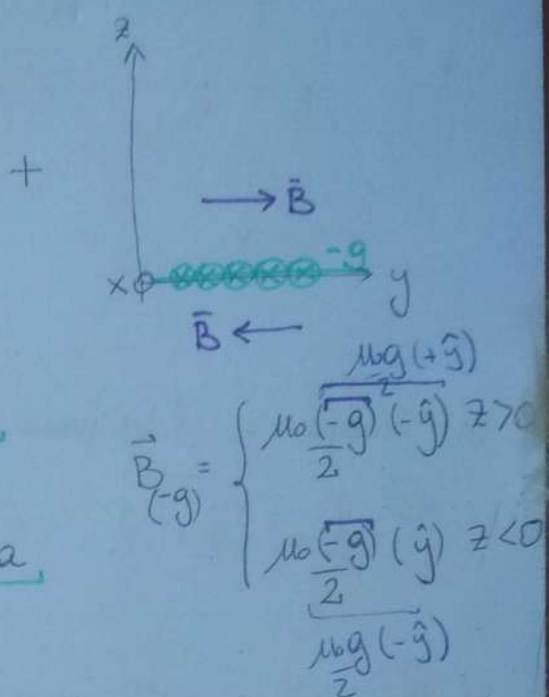 z
+
B̄
-g
x y
B̄
μ₀g/2 (+ŷ)
B⃗(-g) = { μ₀ (-g)/2 (-ŷ) z>0
μ₀ (-g)/2 (ŷ) z<0
a
μ₀g/2 (-ŷ)